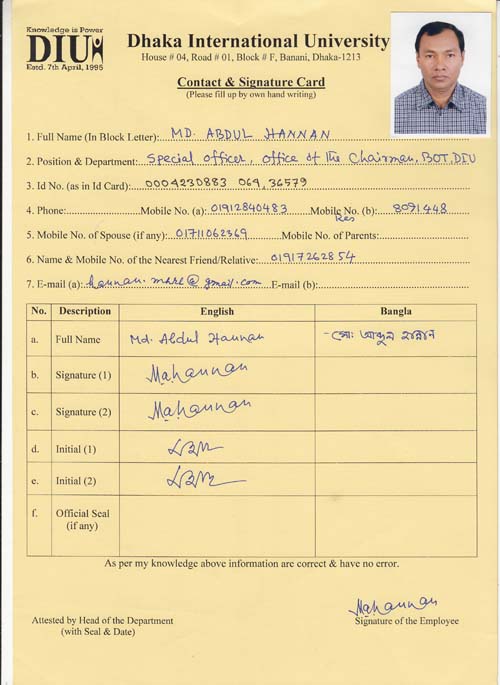 Knowledge is Power
DIU
Estd. 7th April, 1995
Dhaka International University
House # 04, Road # 01, Block # F, Banani, Dhaka-1213
Contact & Signature Card
(Please fill up by own hand writing)
1. Full Name (In Block Letter): MD. ABDUL HANNAN
2. Position & Department: Special officer, office of the Chairman, BOT, DIU
3. Id No. (as in Id Card): 0004230883 064, 36579
4. Phone: Mobile No. (a): 01912840483 Mobile No. (b): 8091448
Res
5. Mobile No. of Spouse (if any): 01711062369 Mobile No. of Parents:
6. Name & Mobile No. of the Nearest Friend/Relative: 01917262854
7. E-mail (a): E-mail (b):
No. Description English Bangla
a. Full Name Md. Abdul Hannan মো: আব্দুল হান্নান
b. Signature (1) Mahannan
c. Signature (2) Mahannan
d. Initial (1)
e. Initial (2)
f. Official Seal
(if any)
As per my knowledge above information are correct & have no error.
Mahannan
Attested by Head of the Department Signature of the Employee
(with Seal & Date)